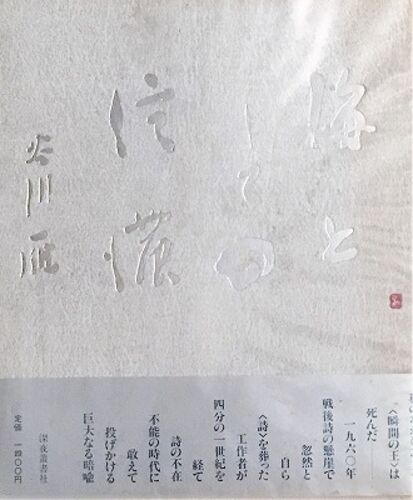 海と
しての
信濃
谷川雁
〈瞬間の王〉は
死んだ
一九六〇年
戦後詩の懸崖で
忽然と
自ら
〈詩〉を葬った
工作者が
四分の一世紀を
経て
詩の不在
不能の時代に
敢えて
投げかける
巨大なる暗喩
深夜叢書社
定価 一四〇〇円